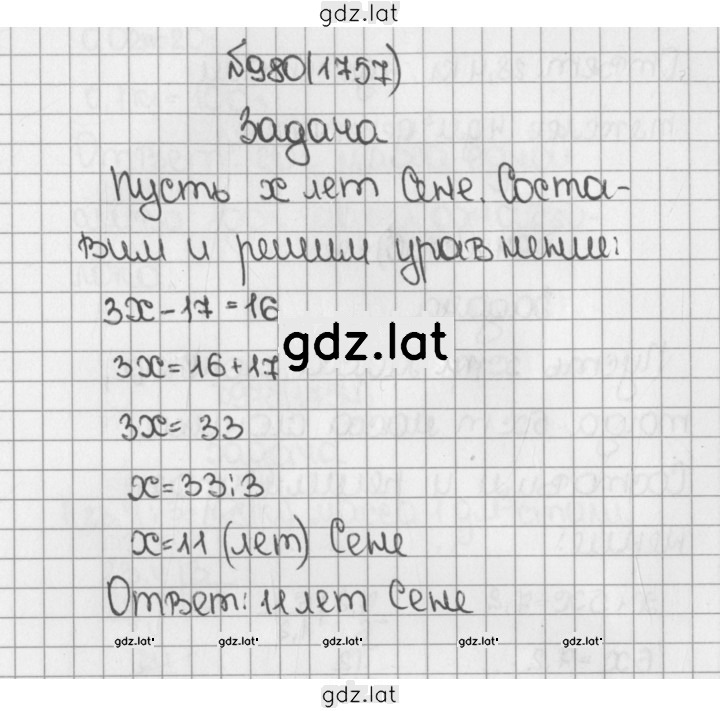 gdz.lat
№980(1757)
Задача
Пусть x лет Сене. Соста-
вим и решим уравнение:
3x-17=16
gdz.lat
3x=16+17
3x=33
x=33:3
x=11 (лет) Сене
Ответ: 11 лет Сене
gdz.lat gdz.lat gdz.lat gdz.lat gdz.lat gdz.lat
gdz.lat